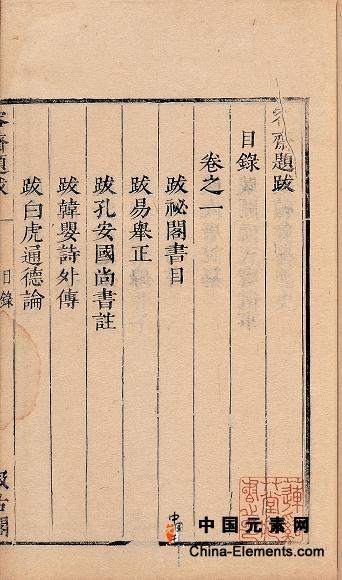 容齋題跋
目錄
卷之一
跋祕閣書目
跋易舉正
跋孔安國尚書註
跋韓嬰詩外傳
跋白虎通德論
容齋題跋
目錄
汲古閣
中国元素网
China-Elements.com